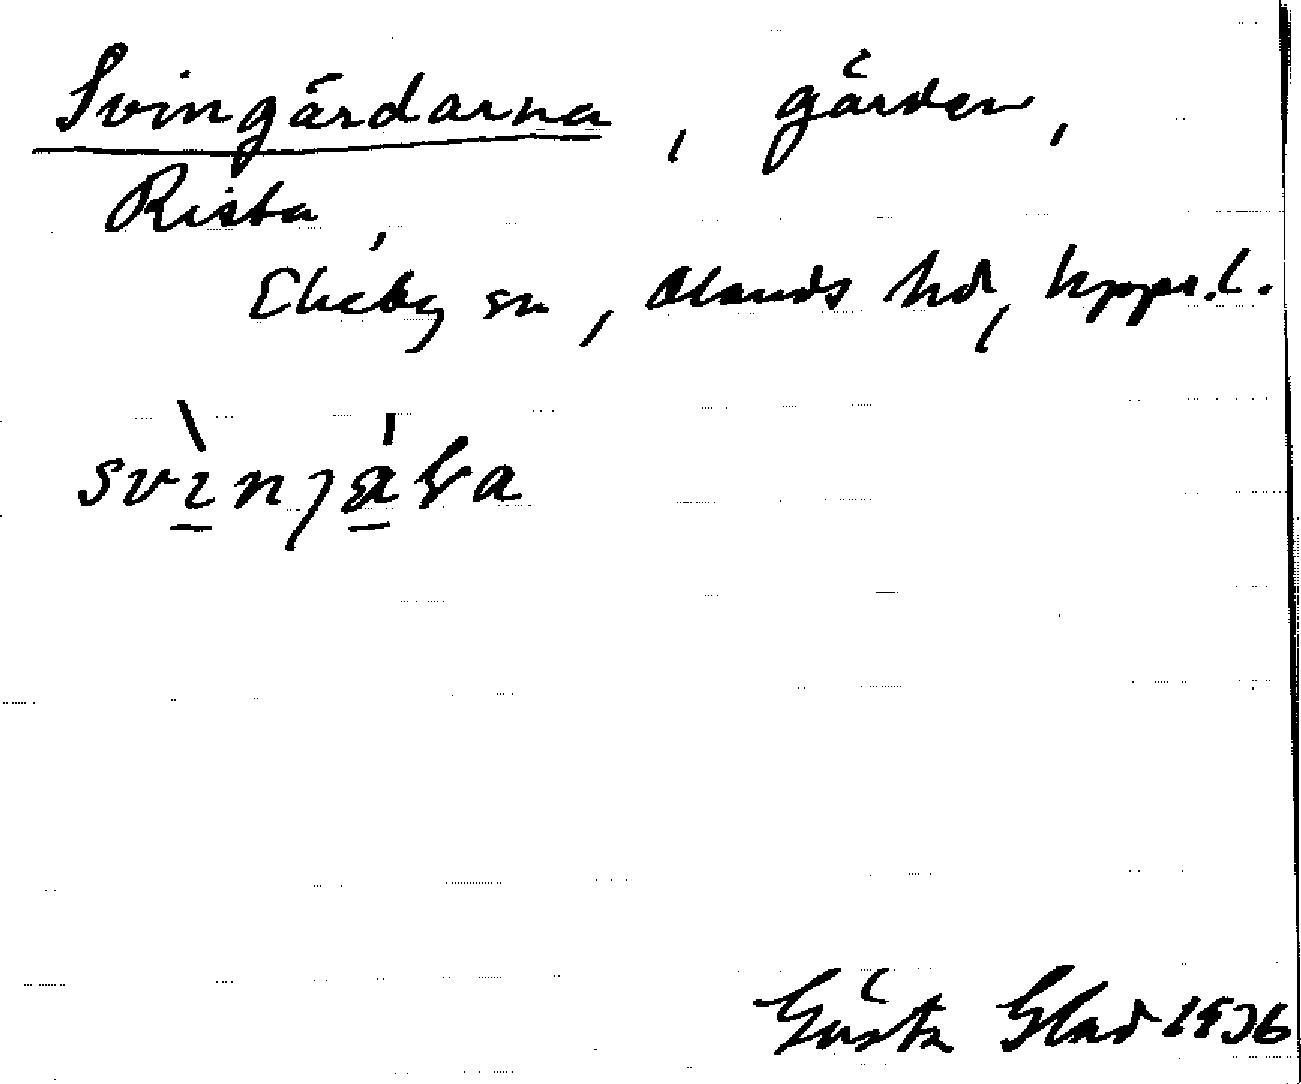 Svingärdarna, gärden,
Rista,
Ekeby sn, Olands hd, Upps. l.
Gösta Glad 1936